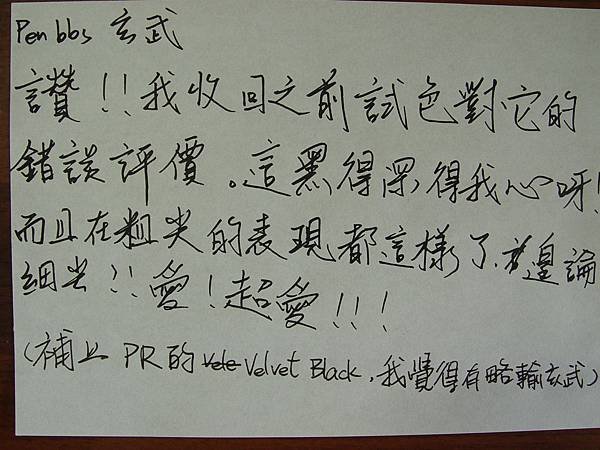 Penbbs 玄武
讚!!我收回之前試色對它的
錯誤評價。這黑得深得我心呀!
而且在粗尖的表現都這樣了,遑論
細尖!!愛!超愛!!!
(補上 PR的 Vele Velvet Black,我覺得有略輸玄武)